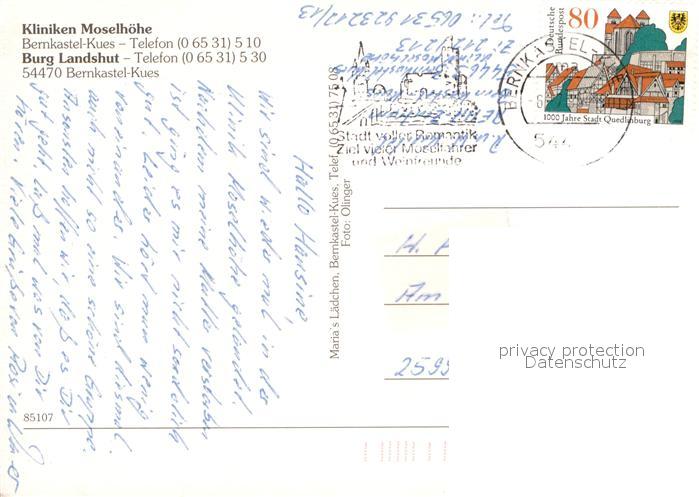 Kliniken Moselhöhe
Bernkastel-Kues – Telefon (0 65 31) 5 10
Burg Landshut – Telefon (0 65 31) 5 30
54470 Bernkastel-Kues
Hallo Hansine,
wir sind wieder mal in der
Klinik Moselhöhe gelandet.
Nachdem meine Mutter verstorben
ist ging es mir nicht sonderlich
gut. Leider hört man wenig
voneinander. Wir sind diesmal
auch nicht so eine schöne Gruppe.
Ansonsten hoffen wir, daß es Dir
gut geht. Laß mal was von Dir
hören. Viele Grüße von
85107
Maria's Lädchen, Bernkastel-Kues, Telef. (0 65 31) 76 08
Foto: Olinger
Tel.: 06531 923212/13
Z: 212/213
Stadt voller Romantik
Ziel vieler Moselfahrer
und Weinfreunde
BERNKASTEL-
544
Deutsche
Bundespost
80
1000 Jahre Stadt Quedlinburg
H.
Am
2599
privacy protection
Datenschutz